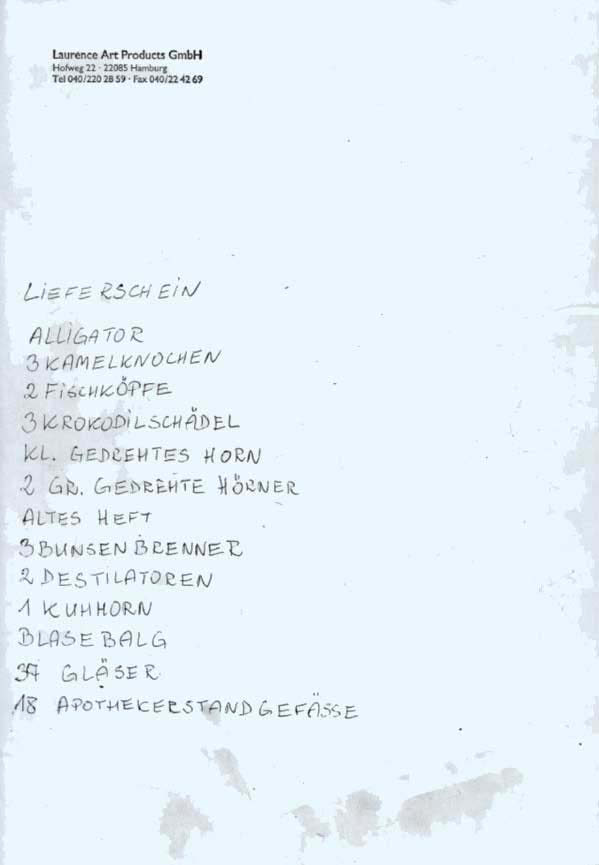 Laurence Art Products GmbH
Hofweg 22 · 22085 Hamburg
Tel 040/220 28 59 · Fax 040/22 42 69
LIEFERSCHEIN
ALLIGATOR
3 KAMELKNOCHEN
2 FISCHKÖPFE
3 KROKODILSCHÄDEL
KL. GEDREHTES HORN
2 GR. GEDREHTE HÖRNER
ALTES HEFT
3 BUNSENBRENNER
2 DESTILATOREN
1 KUHHORN
BLASEBALG
37 GLÄSER
18 APOTHEKERSTANDGEFÄSSE